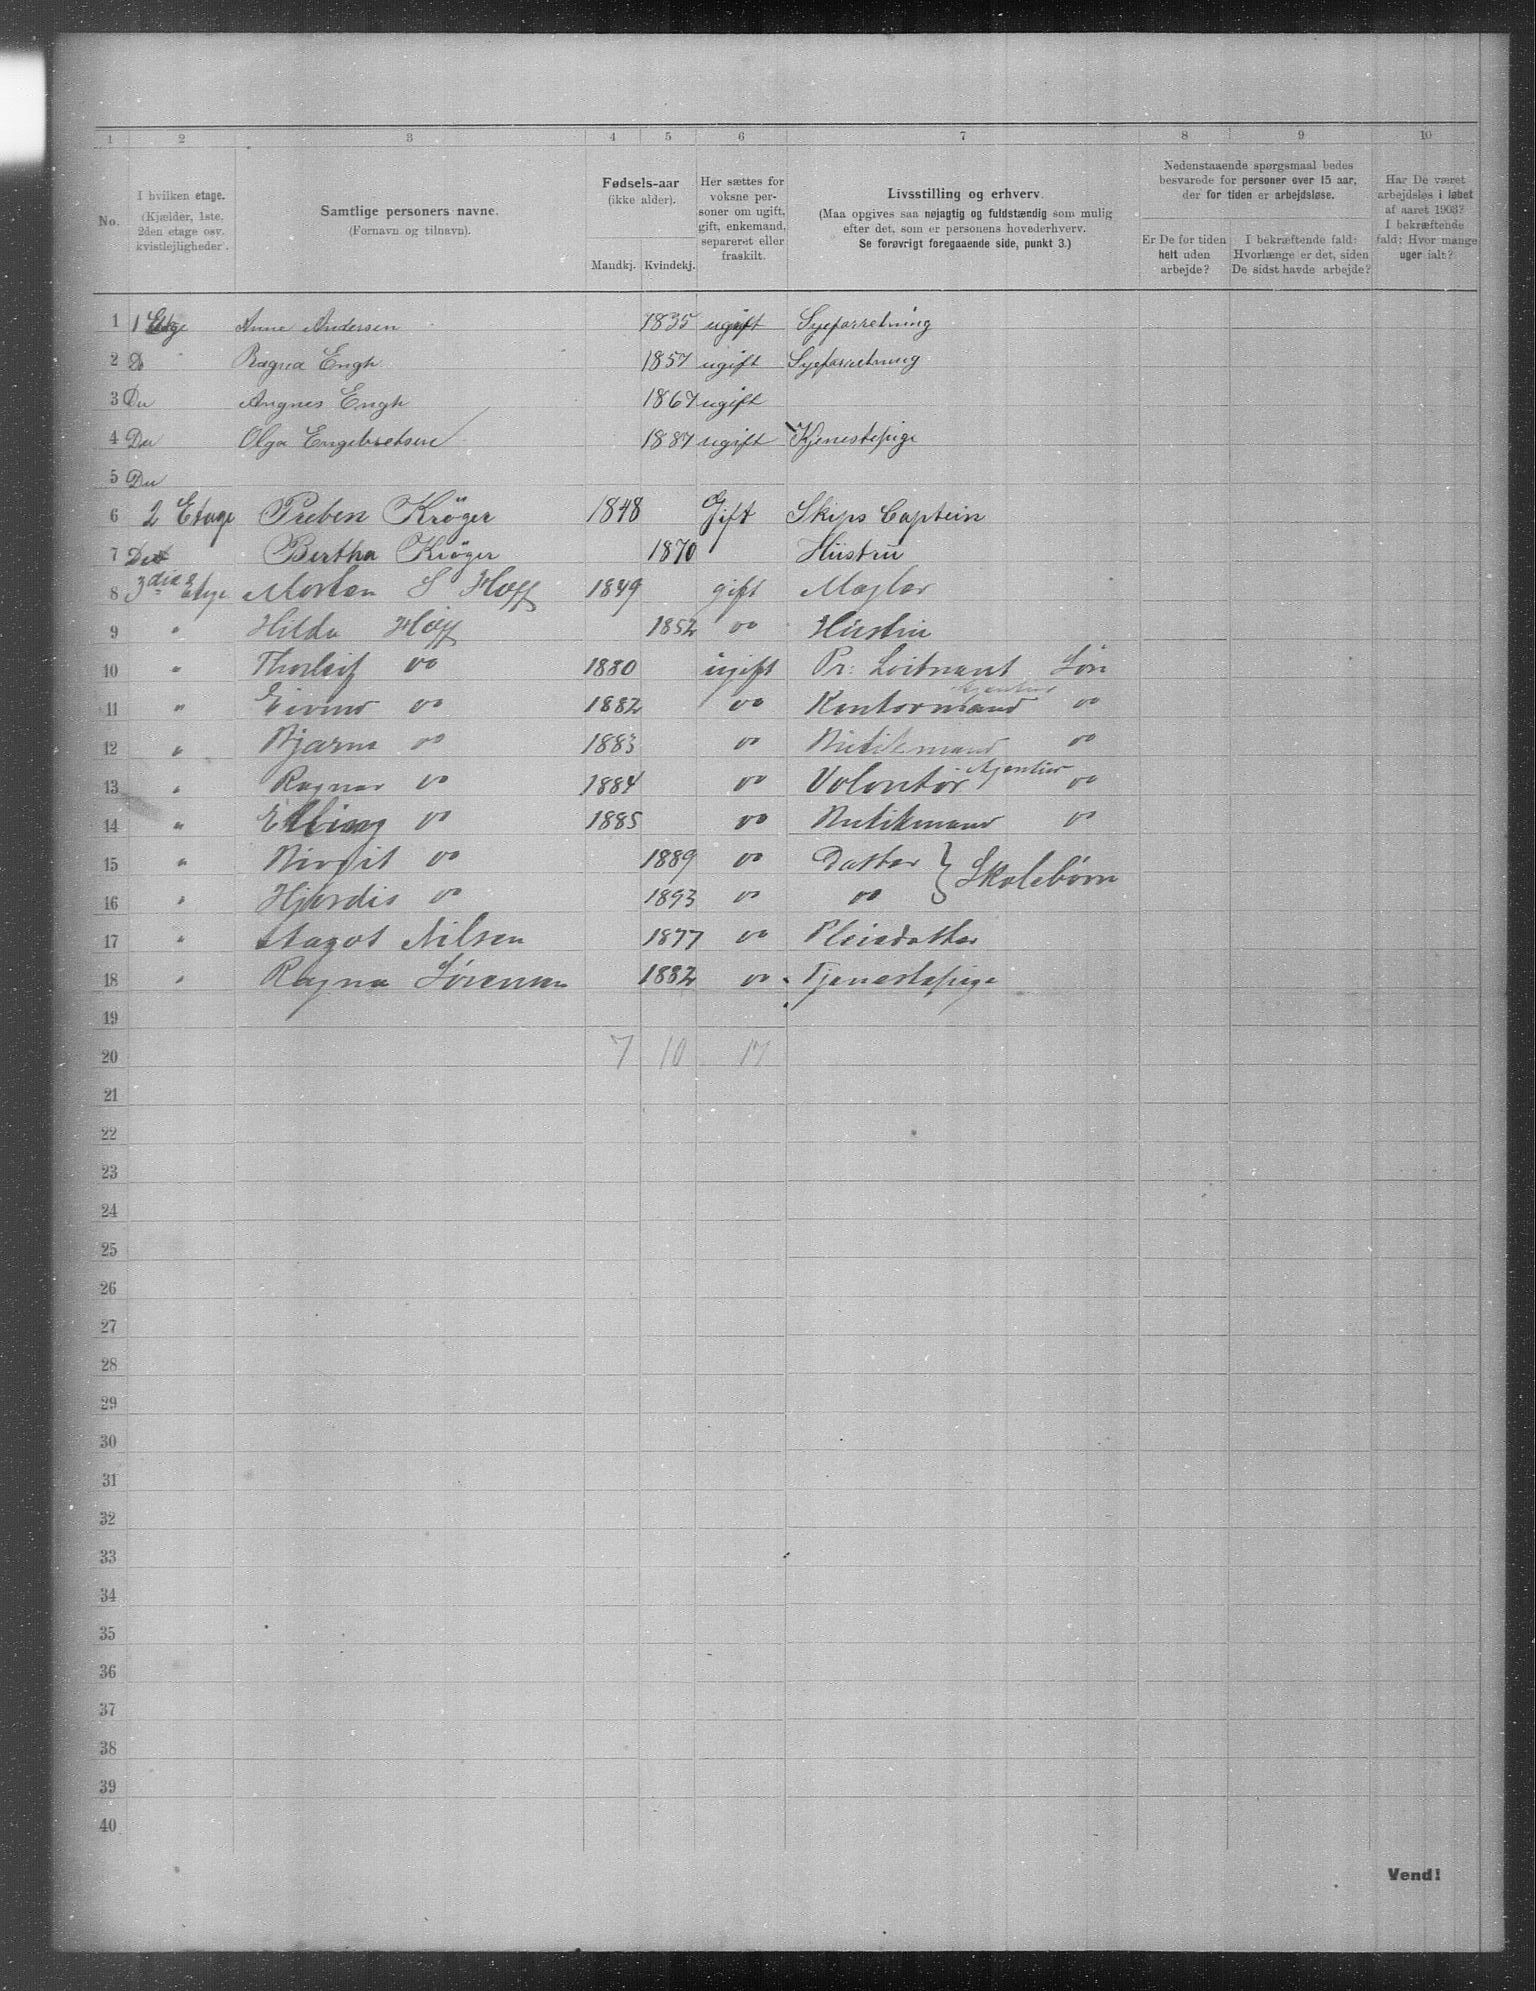 1 2 3 4 5 6 7 8 9 10
No.
I hvilken etage. (Kjælder, 1ste, 2den etage osv. kvistlejligheder).
Samtlige personers navne. (Fornavn og tilnavn).
Fødsels-aar (ikke alder).
Mandkj. Kvindekj.
Her sættes for voksne personer om ugift, gift, enkemand, separeret eller fraskilt.
Livsstilling og erhverv.
(Maa opgives saa nøjagtig og fuldstændig som mulig efter det, som er personens hovederhverv.
Se forøvrigt foregaaende side, punkt 3.)
Nedenstaaende spørgsmaal bedes besvarede for personer over 15 aar, der for tiden er arbejdsløse.
Er De for tiden helt uden arbejde?
I bekræftende fald: Hvorlænge er det, siden De sidst havde arbejde?
Har De været arbejdsløs i løbet af aaret 1903? I bekræftende fald: Hvor mange uger ialt?
1 1 Etage Anna Andersen 1835 ugift Syeforretning
2 Do Ragna Engh 1857 ugift Syeforretning
3 Do Angnes Engh 1867 ugift
4 Do Olga Engebretsen 1887 ugift Tjenestepige
5 Do
6 2 Etage Preben Krøger 1848 Gift Skips Captein
7 Do Bertha Krøger 1870 Hustru
8 3die Etage Morten S Hoff 1849 gift Mægler
9 " Hilda Hoff 1852 do Hustru
10 " Thorleif do 1880 ugift Pr: Loitnant Søn
11 " Eivind do 1882 do Kontormand Agentur do
12 " Bjarne do 1883 do Butikmand do
13 " Ragnar do 1884 do Volontør Agentur do
14 " Elling do 1885 do Butikmand do
15 " Birgit do 1889 do Datter } Skolebørn
16 " Hjørdis do 1893 do do
17 " Aagot Nilsen 1877 do Pleiedatter
18 " Ragna Sørensen 1882 do Tjenestepige
19
20 7 10 17
21
22
23
24
25
26
27
28
29
30
31
32
33
34
35
36
37
38
39
40
Vend!